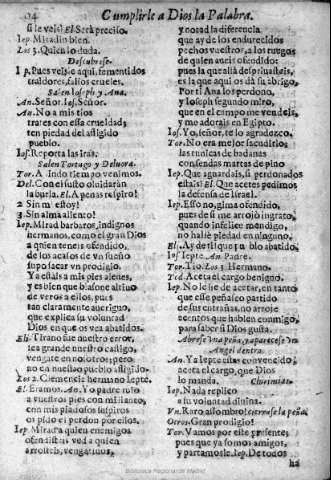 Cumplirle a Dios la Palabra.
si le veis? El. Será preciso.
Iep. Miradlo bien.
Los 3. Quien lo duda.
Descubrese.
Iep. Pues veisle aqui, fementidos
traidores, fieles crueles.
Salen Ioseph y Ana.
An. Señor. Ios. Señor.
An. No a mis tios
trates con essa crueldad,
ten piedad del afligido
pueblo.
Ios. Reporta las iras.
Salen Tortago y Deluora.
Tor. A lindo tiempo venimos.
Del. Con el susto olvidarán
la burla. El. Apenas respiro!
2 Sin mi estoy!
3. Sin alma aliento!
Iep. Mirad barbaros, indignos
hermanos, como el gran Dios
a quien teneis ofendido,
de los acasos de vn sueño
supo sacar vn prodigio.
Ya estais a mis pies aleues,
y es bien que blasone altiuo
de veros a ellos, pues
tan claramente auerigno,
que explica su voluntad
Dios en que os vea abatidos.
Eli. Tirano fue nuestro error,
sea grande nuestro castigo,
vengate en nosotros; pero
no en nuestro pueblo afligido.
Los 2. Clemencia hermano Iepte.
El. Eramos. An. Yo padre mio
a vuestros pies con mi llanto,
con mis piadosos suspiros
os pido el perdon por ellos.
Iep. Mirad a quien enemigos
ofendisteis ved a quien
arrojais, vengatiuos,
y notad la diferencia
que ay de los endurecidos
pechos vuestros, a los ruegos
de quien aueis ofendido:
pues la que allá despreciasteis,
es la que aqui os dá su abrigo.
Por ti Ana los perdono,
y Ioseph segundo miro,
que en el campo me vendeis,
y me adorais en Egipto.
Ios. Yo, señor, te lo agradezco.
Tor. No era mejor sacudirlos
las tunicas de badanas
con sendas martas de pino
Iep. Que aguardais, si perdonados
estais? El. Que acetes pedimos
la defensa de Israel.
Iep. Esso no, gima ofendido,
pues de si me arrojó ingrato,
quando infelice mendigo,
no hallé piedad en ninguno.
El. Ay de ti que pueblo abatido,
Ios Iepte. An. Padre.
Tor. Tio. Los 3 Hermano.
Tod Aceta el cargo benigno.
Iep. No le he de acetar, en tanto
que esse peñasco partido
de sus entrañas, no arroje
acentos que hablen conmigo,
para saber si Dios gusta.
Abrese vna peña, y aparecese vn
Angel dentro.
An. Ya Iepte estás convencido;
aceta el cargo, que Dios
lo manda. Chirimias.
Iep. Nada replico
a su voluntad diuina.
Vn. Raro assombro! cierrase la peña
Otros. Gran prodigio!
Tor. Vamos por esse presente,
pues que ya somos amigos,
y partamosle. Iep. De todos
ha
Biblioteca Regional de Madrid